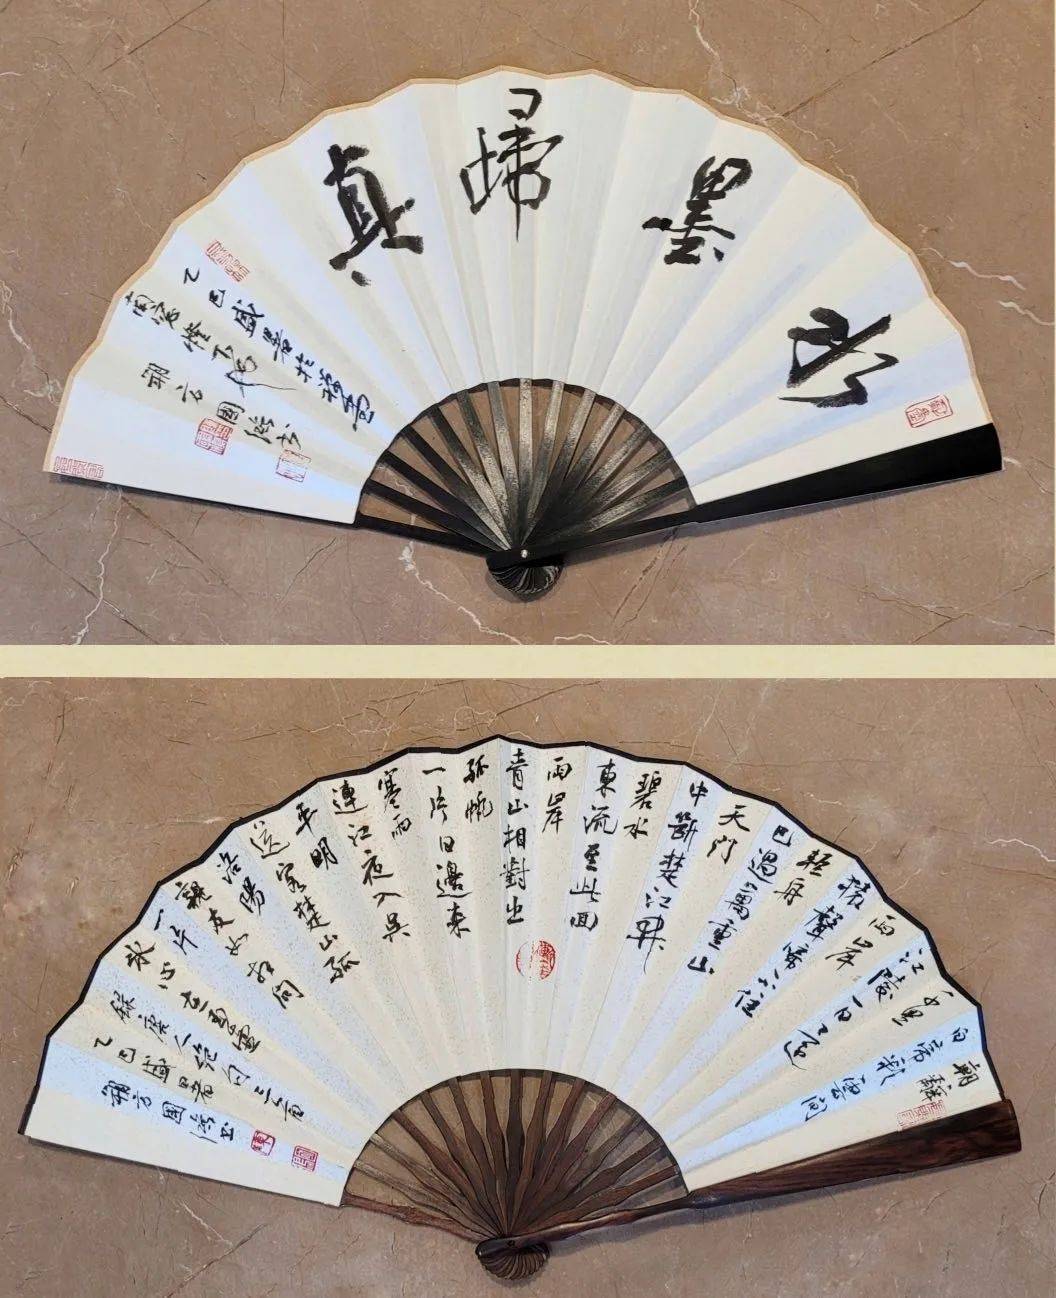 水墨歸真
乙巳盛暑於
南窗燈下
朔方國
朝辭
白帝彩雲間
千里
江陵一日還
兩岸
猿聲啼不住
輕舟
已過萬重山
天門
中斷楚江開
碧水
東流至此回
兩岸
青山相對出
孤帆
一片日邊来
寒雨
連江夜入吳
平明
送客楚山孤
洛陽
親友如相問
一片
冰心在玉壺
錄唐人絕句三首
乙巳盛暑
朔方國